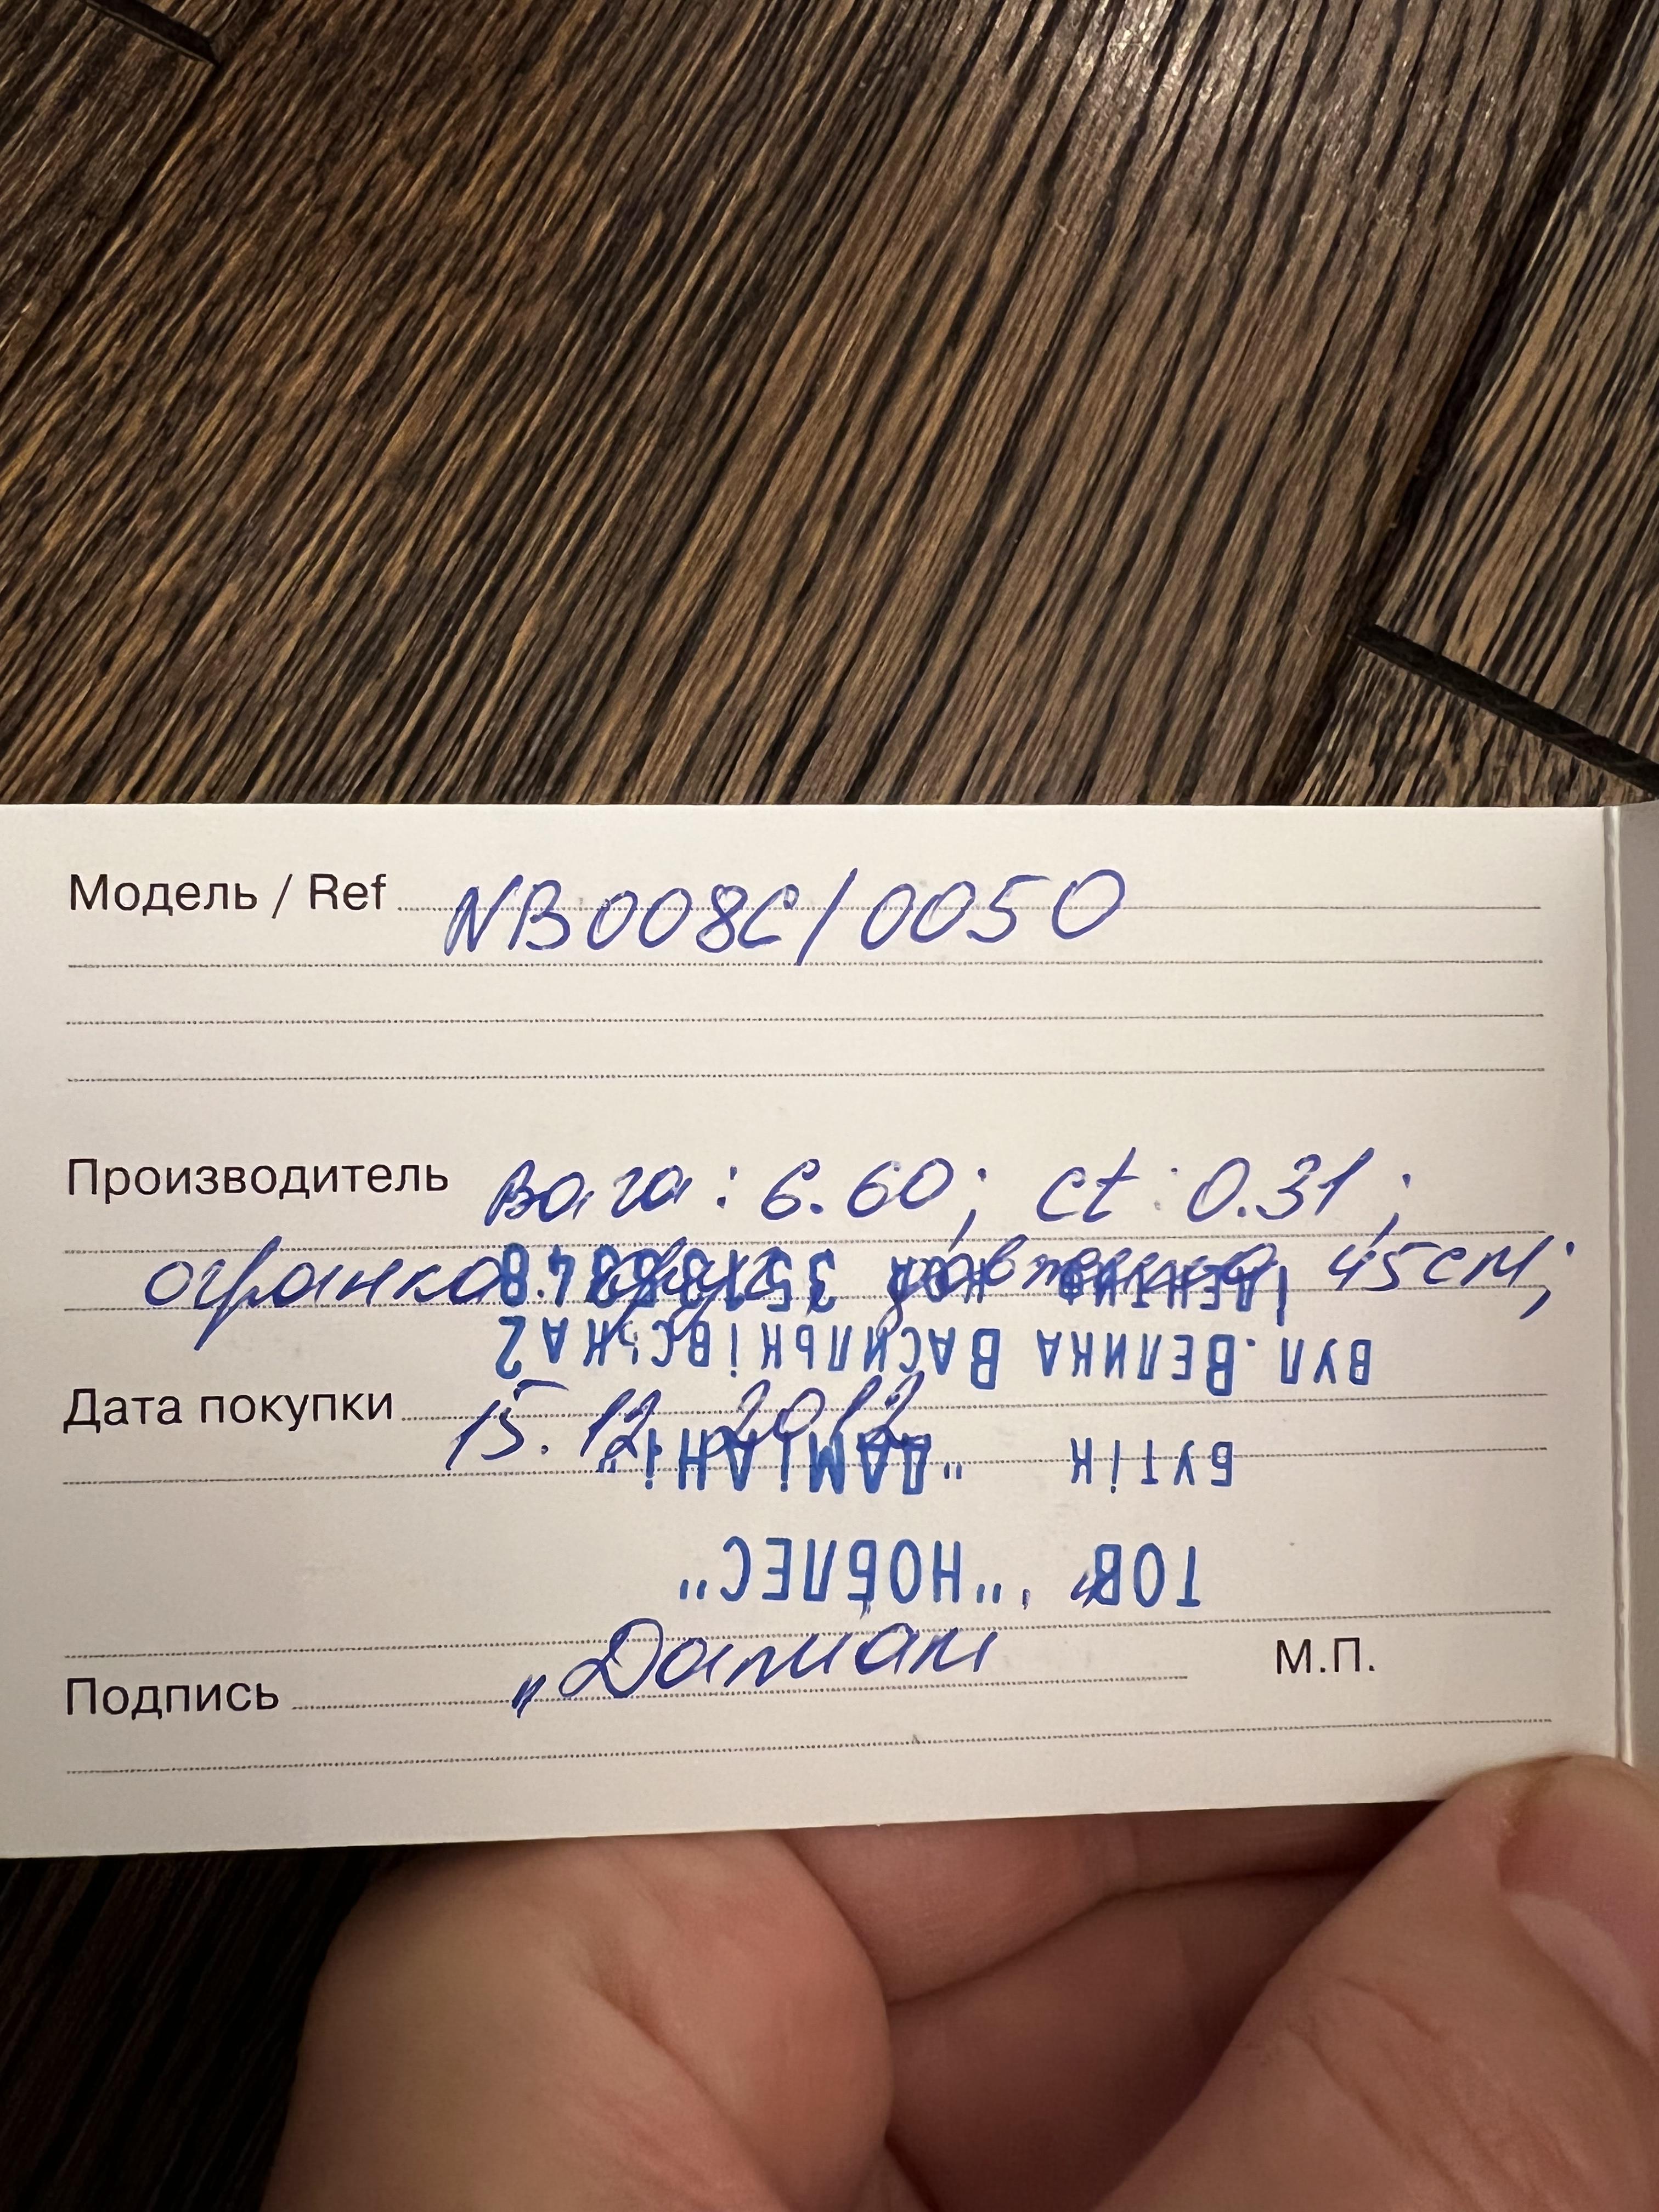 Модель / Ref NB008C/0050
Производитель вага: 6.60; ct: 0.31;
огранка: довжина 45см;
Дата покупки 15.12.2012
Подпись „Даміані М.П.
ТОВ "НОБЛЕС"
БУТІК "ДАМІАНІ"
ВУЛ. ВЕЛИКА ВАСИЛЬКІВСЬКА 2
ІДЕНТИФ КОД